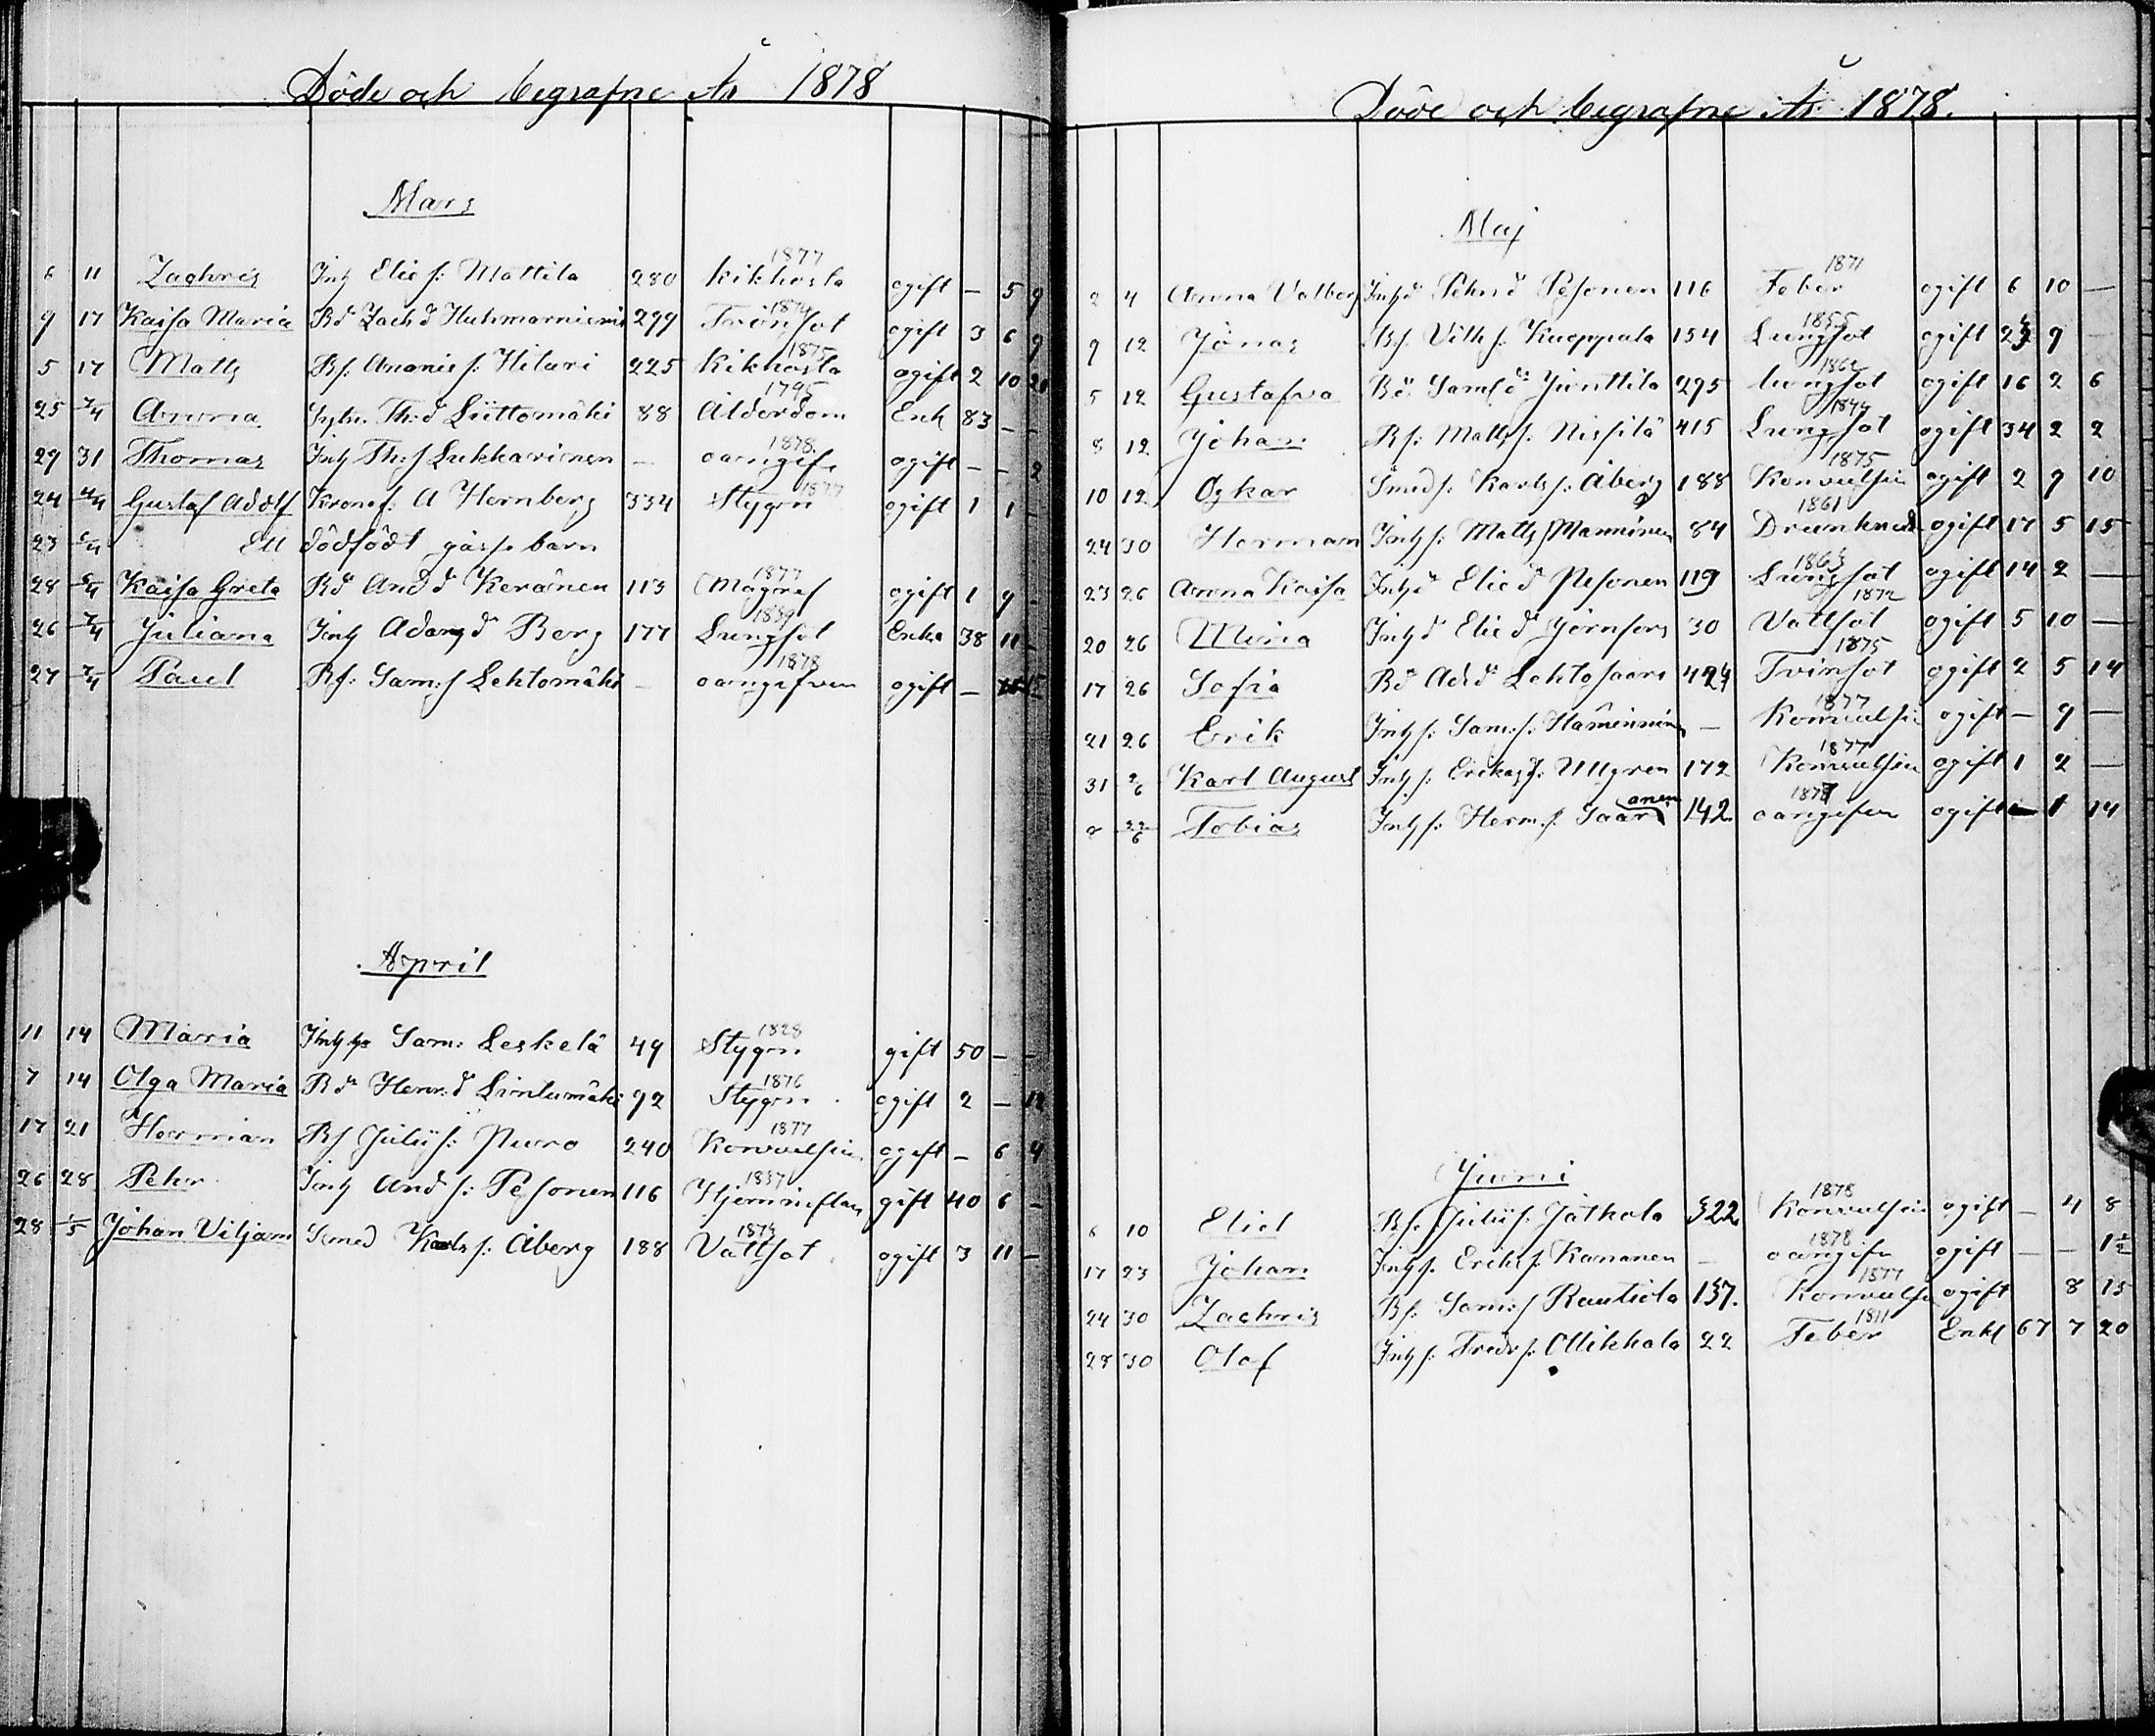 Döde och begrafne År 1878
Mars
6 11 Zachris Inh Elie s: Mattila 280 kikhosta 1877 ogift — 5 9
9 17 Kaisa Maria Bd Zach d Huhmarniemi 299 Tvinsot 1874 ogift 3 6 9
5 17 Matts Bs: Ananie s: Hilari 225 Kikhosta 1875 ogift 2 10 20
25 7/4 Anna Th: d Liittomäki 88 Ålderdom 1795 Enk 83 — —
29 31 Thomas Inh Th: s Lukkarinen — oangifv 1878 ogift — — 2
24 Gustaf Adolf Kronof: A Hernberg 334 Stygn 1877 ogift 1 1 —
23 Ett dödfödt gåsse barn
28 Kaisa Greta Bd And d Keränen 113 Magref 1877 ogift 1 9 -
26 7/4 Juliana Inh Adams d Berg 177 Lungsot 1839 Enka 38 11 -
27 7/4 Paul Bs: Sam: s Lehtomäki — oangifven 1878 ogift —
April
11 14 Maria Inh hu Sam: Leskelä 49 Stygn 1828 gift 50 — —
7 14 Olga Maria Bd Henr: d Lintumäki 92 Stygn 1876 ogift 2 — 12
17 21 Herman Bs Julii s: Puro 240 Konvulsin 1877 ogift — 6 4
26 28 Pehr Inh And s: Pesonen 116 Hjerninflam 1837 gift 40 6 —
28 1/5 Johan Viljam Smed Karls s: Åberg 188 Vattsot 1874 ogift 3 11 —
Döde och begrafne År 1878.
Maj
2 4 Anna Valborg Inh d Pehrs d Pesonen 116 Feber 1871 ogift 6 10 —
9 12 Jonas Bs Vilh s: Kuoppala 154 Lungsot 1855 ogift 23 9 —
5 12 Gustafva Bd Sam d: Junttila 295 lungsot 1862 ogift 16 2 6
8 12 Johan Bs: Matts s: Nissilä 415 Lungsot 1844 ogift 34 2 2
10 12 Oskar Smed s: Karls s: Åberg 188 Konvulsin 1875 ogift 2 9 10
24 30 Herman Inh s: Matts s Manninen 84 Drunknad 1861 ogift 17 5 15
23 26 Anna Kaisa Inh d Elie d Pesonen 119 Lungsot 1863 ogift 14 2 —
20 26 Miina Inh d Elie d Jernfors 30 Vattsot 1872 ogift 5 10 —
17 26 Sofia Bd Ad: d Lehtosaari 424 Tvinsot 1875 ogift 2 5 14
21 26 Erik Inh s: Sam: s: Hämäninen — Konvulsin 1877 ogift — 9 —
31 2/6 Karl August Inh s: Eriks s: Ullgren 172 Konvulsin 1877 ogift 1 2 —
8 22/6 Tobias Inh s: Herm: s: Saaranen 142 oangifven 1878 ogift — 1 14
Juni
6 10 Eliel Bs: Julii s: Jatkola 322 Konvulsin 1878 ogift — 4 8
17 23 Johan Inh s. Eriks s. Kananen — oangifv 1878 ogift — — 1 1/2
24 30 Zachris Bs: Sam: s Rautiola 137. Konvulsin 1877 ogift 8 15
28 30 Olof Inh s: Fredr s: Ollikkala 22 Feber 1811 Enkl 67 7 20